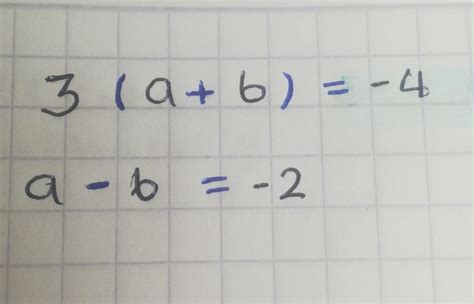 3 (a + b) = -4
a - b = -2